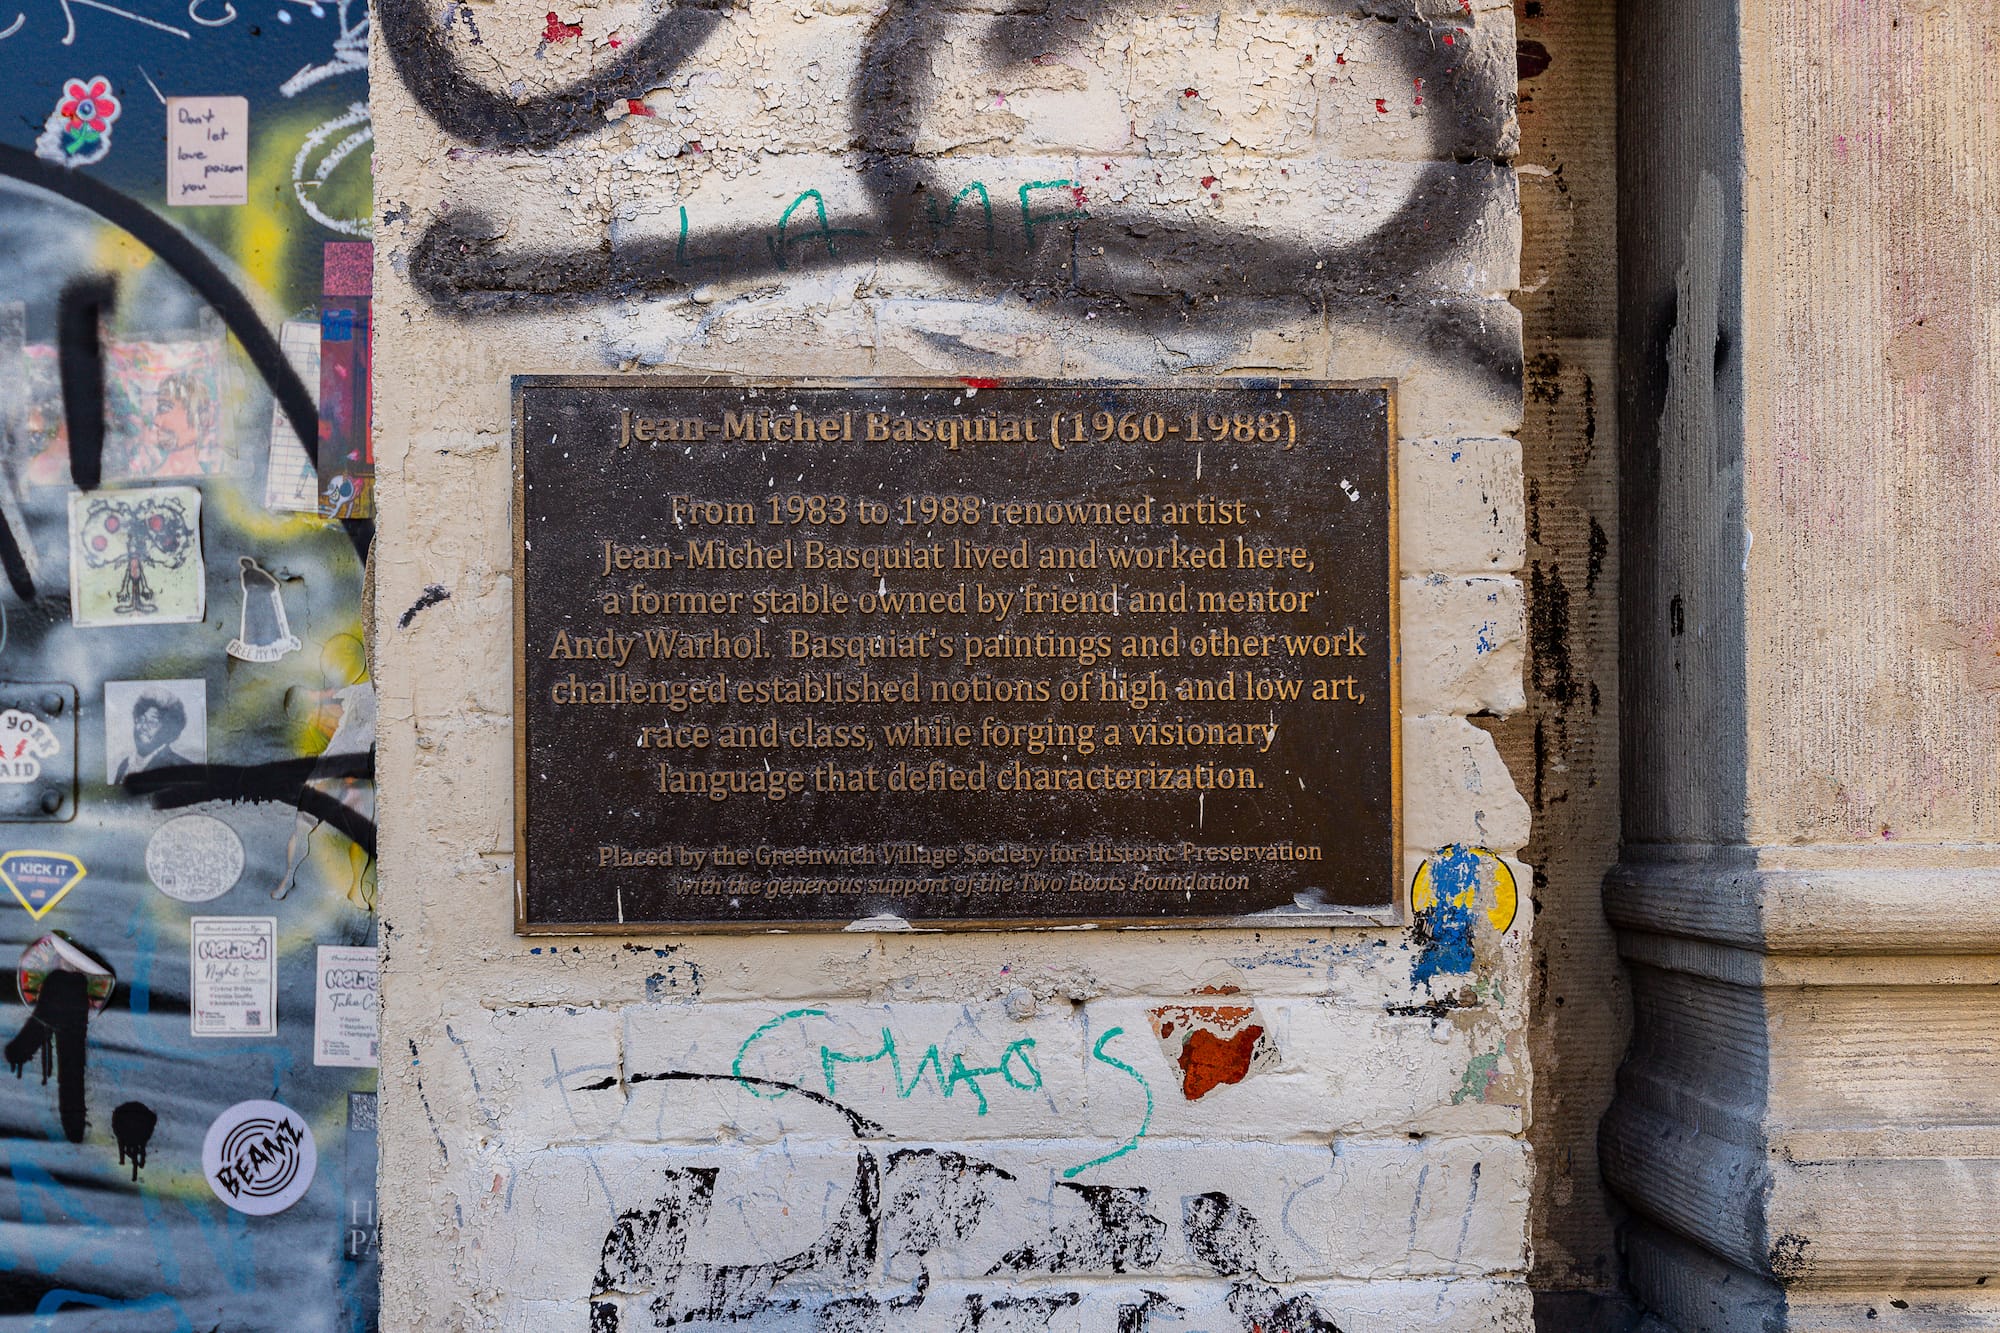 Don't
let
love
poison
you
LAME
Jean-Michel Basquiat (1960-1988)
From 1983 to 1988 renowned artist
Jean-Michel Basquiat lived and worked here,
a former stable owned by friend and mentor
Andy Warhol.  Basquiat's paintings and other work
challenged established notions of high and low art,
race and class, while forging a visionary
language that defied characterization.
Placed by the Greenwich Village Society for Historic Preservation
with the generous support of the Two Boots Foundation
FREE MY
YORK
AID
I KICK IT
MELTED
Night In
MELTED
CHAOS
BEAMZ